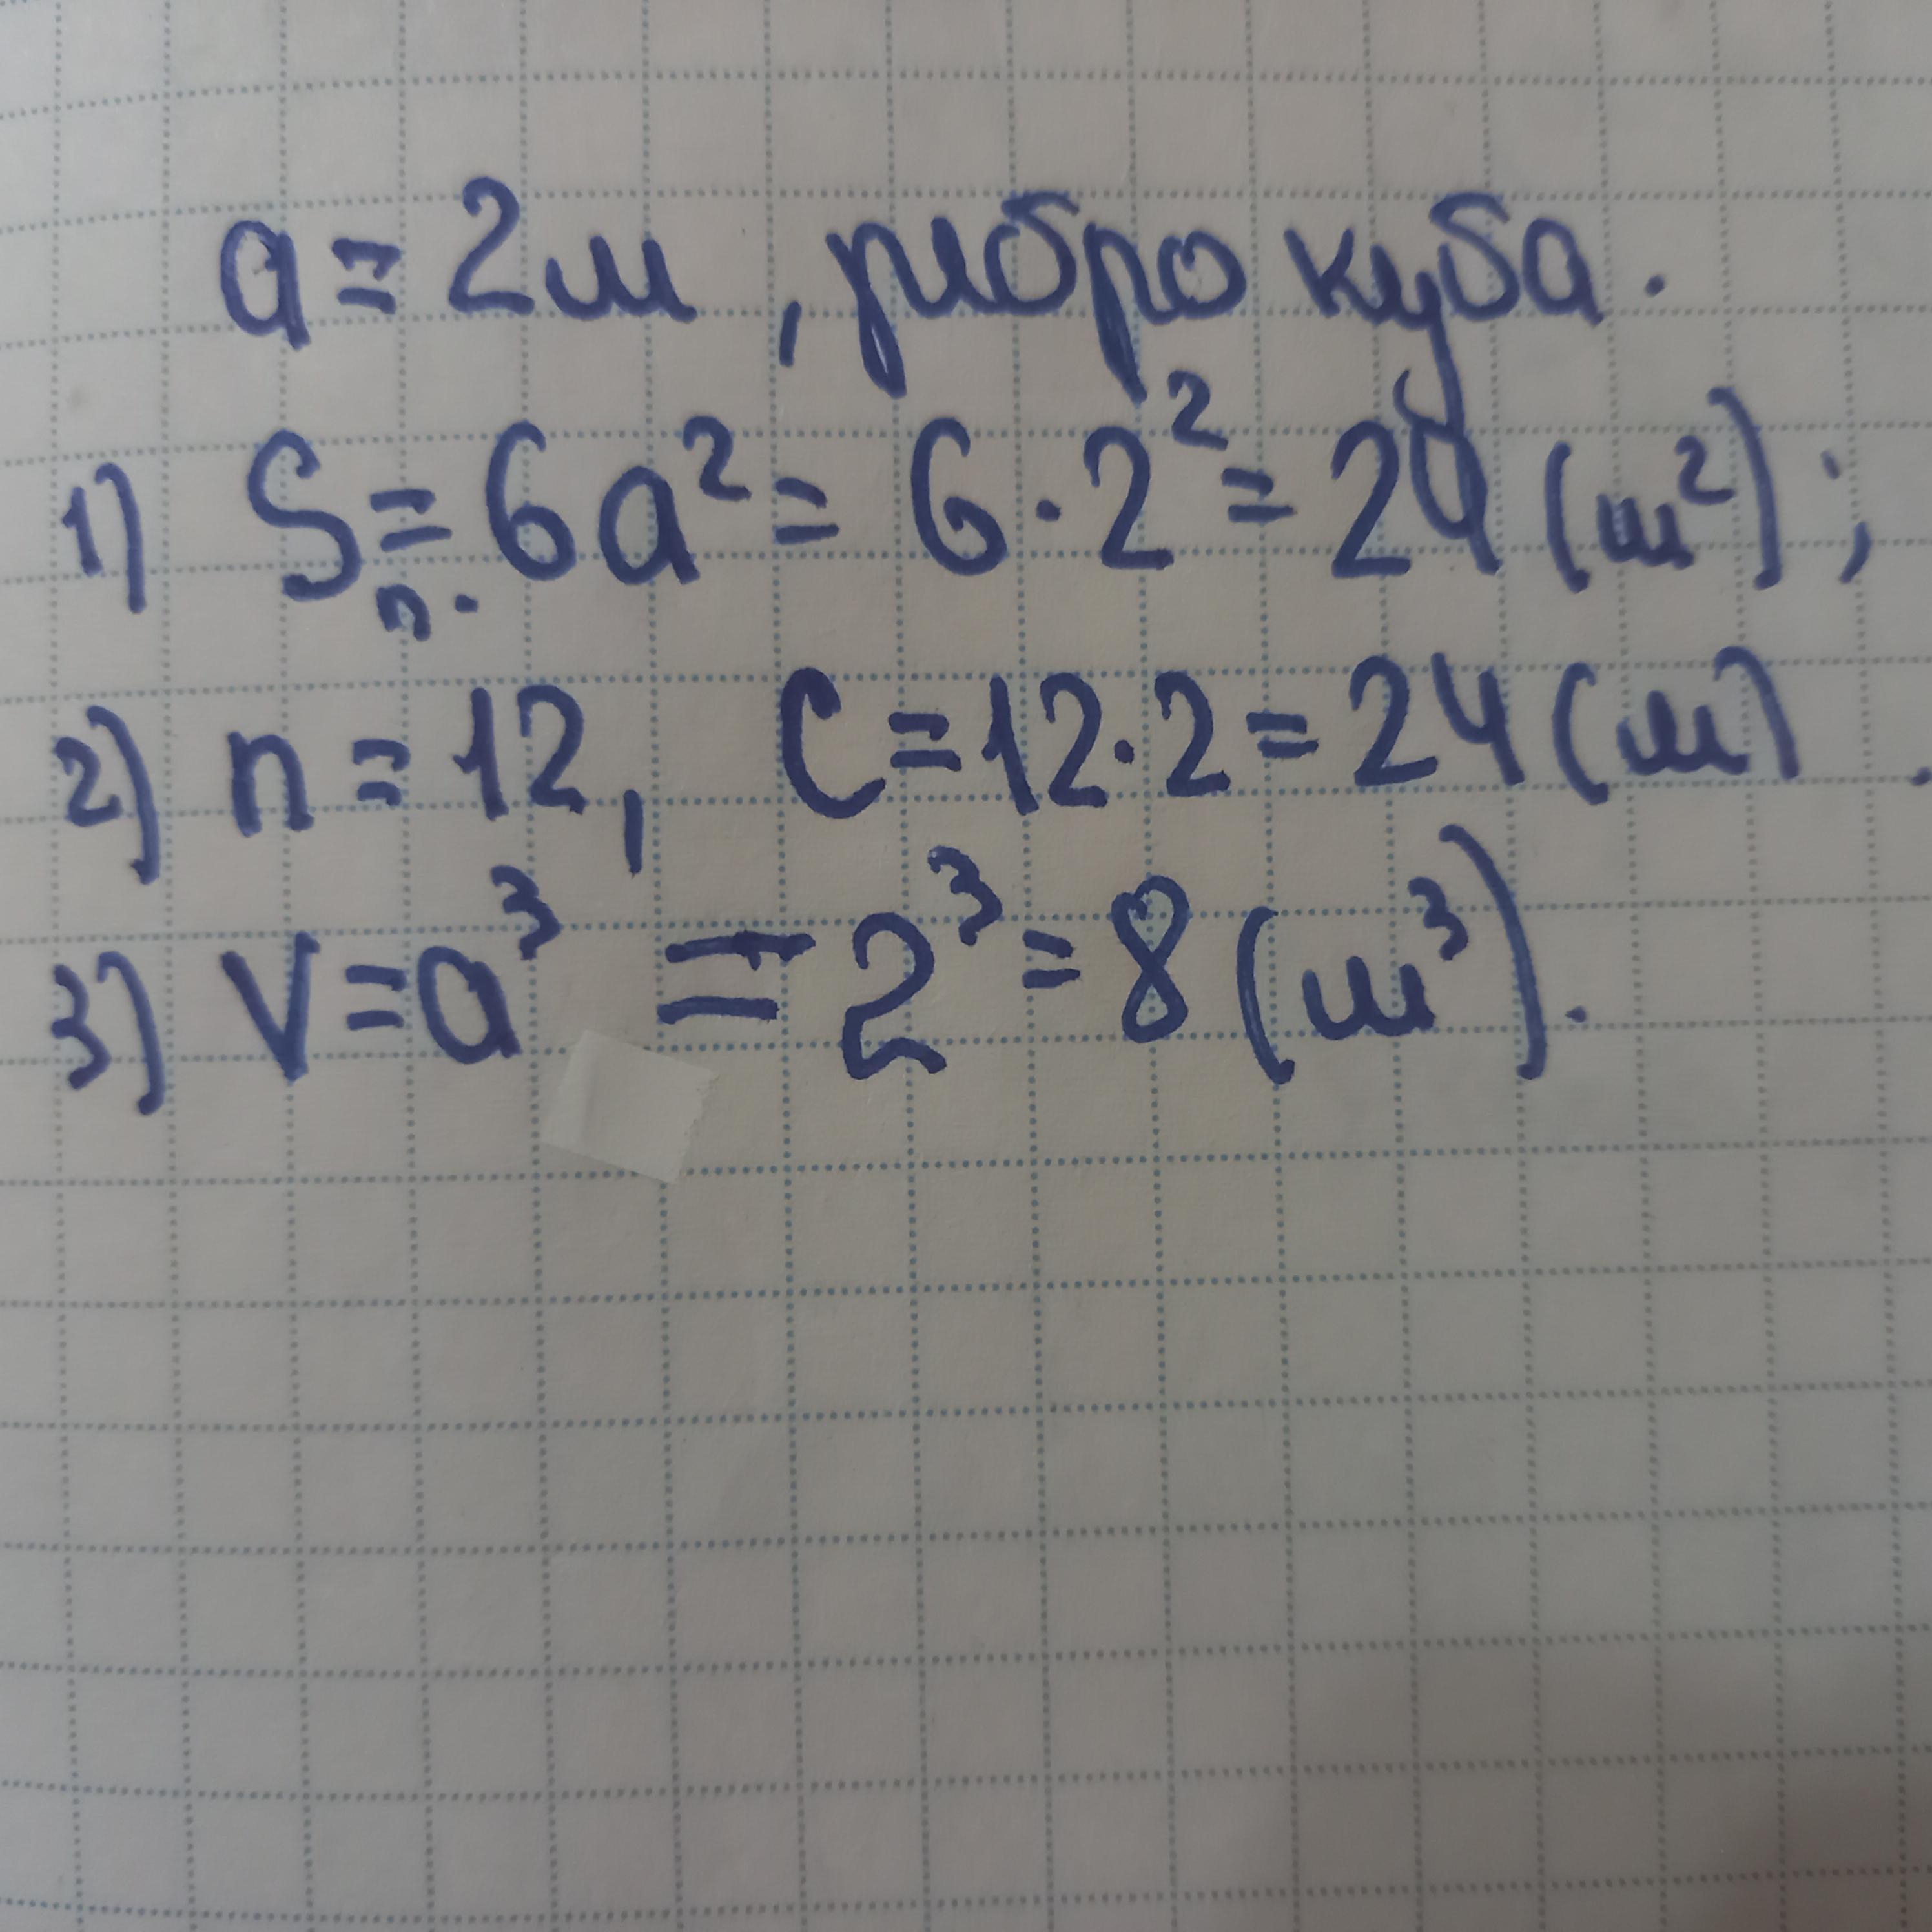 a = 2 м , ребро куба .
1) Sп. = 6a² = 6 · 2² = 24 (м²) ;
2) n = 12 , C = 12 · 2 = 24 (м) .
3) V = a³ = 2³ = 8 (м³) .